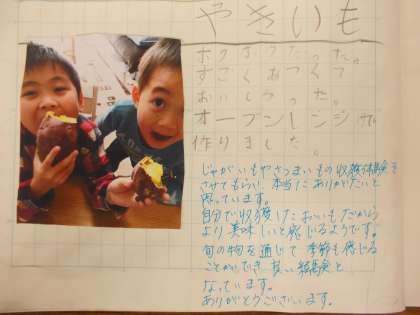 やきいも
ホクホクだった。
すごくあつくて
おいしかった。
オーブンレンジで
作りました。
じゃがいもやさつまいもの収穫体験を
させてもらい 本当にありがたいと
思っています。
自分で収穫したおいもだから
より美味しいと感じるようです。
旬の物を通じて 季節も感じる
ことができ 良い経験と
なっています。
ありがとうございます。